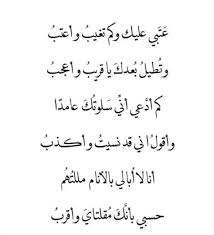 عَتَبي عليك وكم تغيبُ وأعتبُ
وتُطيلُ بُعدكَ يا قريبُ وأعجبُ
كم أدّعي أنّي سَلوتُكَ عامدًا
وأقولُ اني قد نسيتُ وأكذبُ
أنا لا أبالي بالأنامِ مللتُهُم
حسبي بأنَّكَ مُقلتايَ وأقربُ